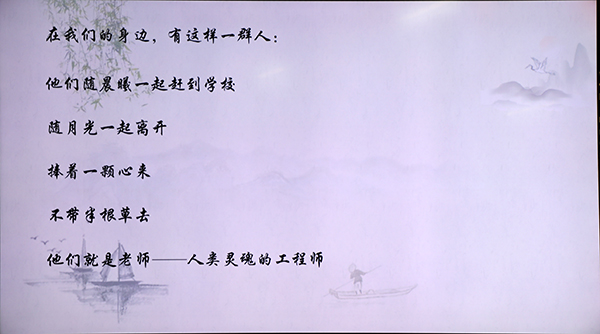 在我们的身边，有这样一群人：
他们随晨曦一起赶到学校
随月光一起离开
捧着一颗心来
不带半根草去
他们就是老师——人类灵魂的工程师